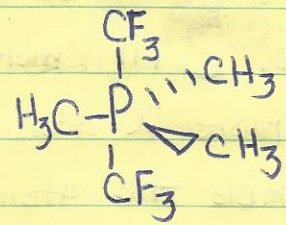 CF3
CH3
H3C-P
CH3
CF3